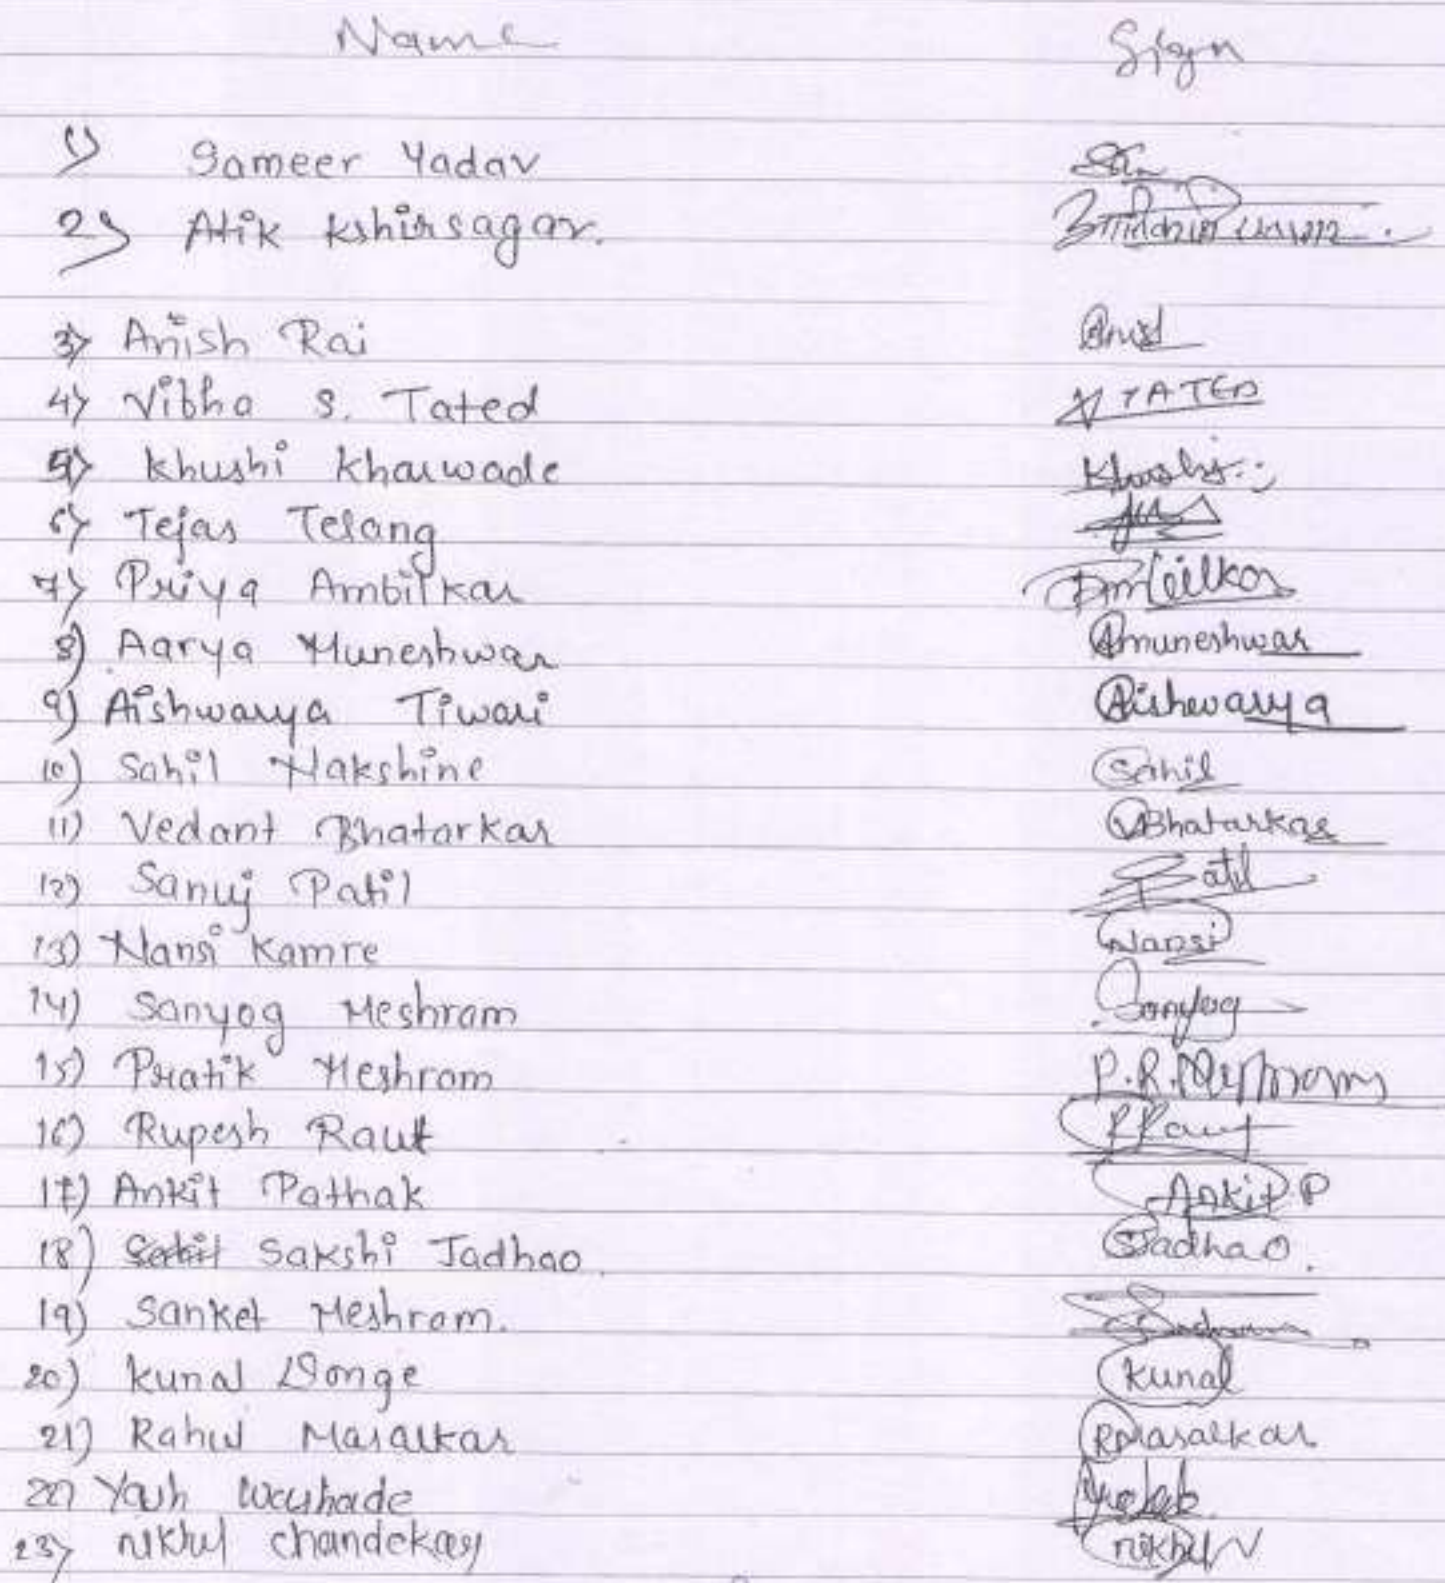 Name Sign
1) Sameer Yadav
2) Atik Kshirsagar.
3) Anish Rai Anish
4) Vibha S. Tated V TATED
5) Khushi Kharwade Khushi
6) Tejas Telang
7) Priya Ambilkar Ambilkar
8) Aarya Muneshwar Amuneshwar
9) Aishwarya Tiwari Aishwarya
10) Sahil Nakshine Sahil
11) Vedant Bhatarkar VBhatarkar
12) Sanuj Patil Patil
13) Nansi Kamre Nansi
14) Sanyog Meshram Sanyog
15) Pratik Meshram P.R.Meshram
16) Rupesh Raut RRaut
17) Ankit Pathak Ankit P
18) Sakshi Jadhao. SJadhao.
19) Sanket Meshram.
20) Kunal Donge Kunal
21) Rahul Masalkar RMasalkar
22) Yash
23) Nikhil Chandekar Nikhil